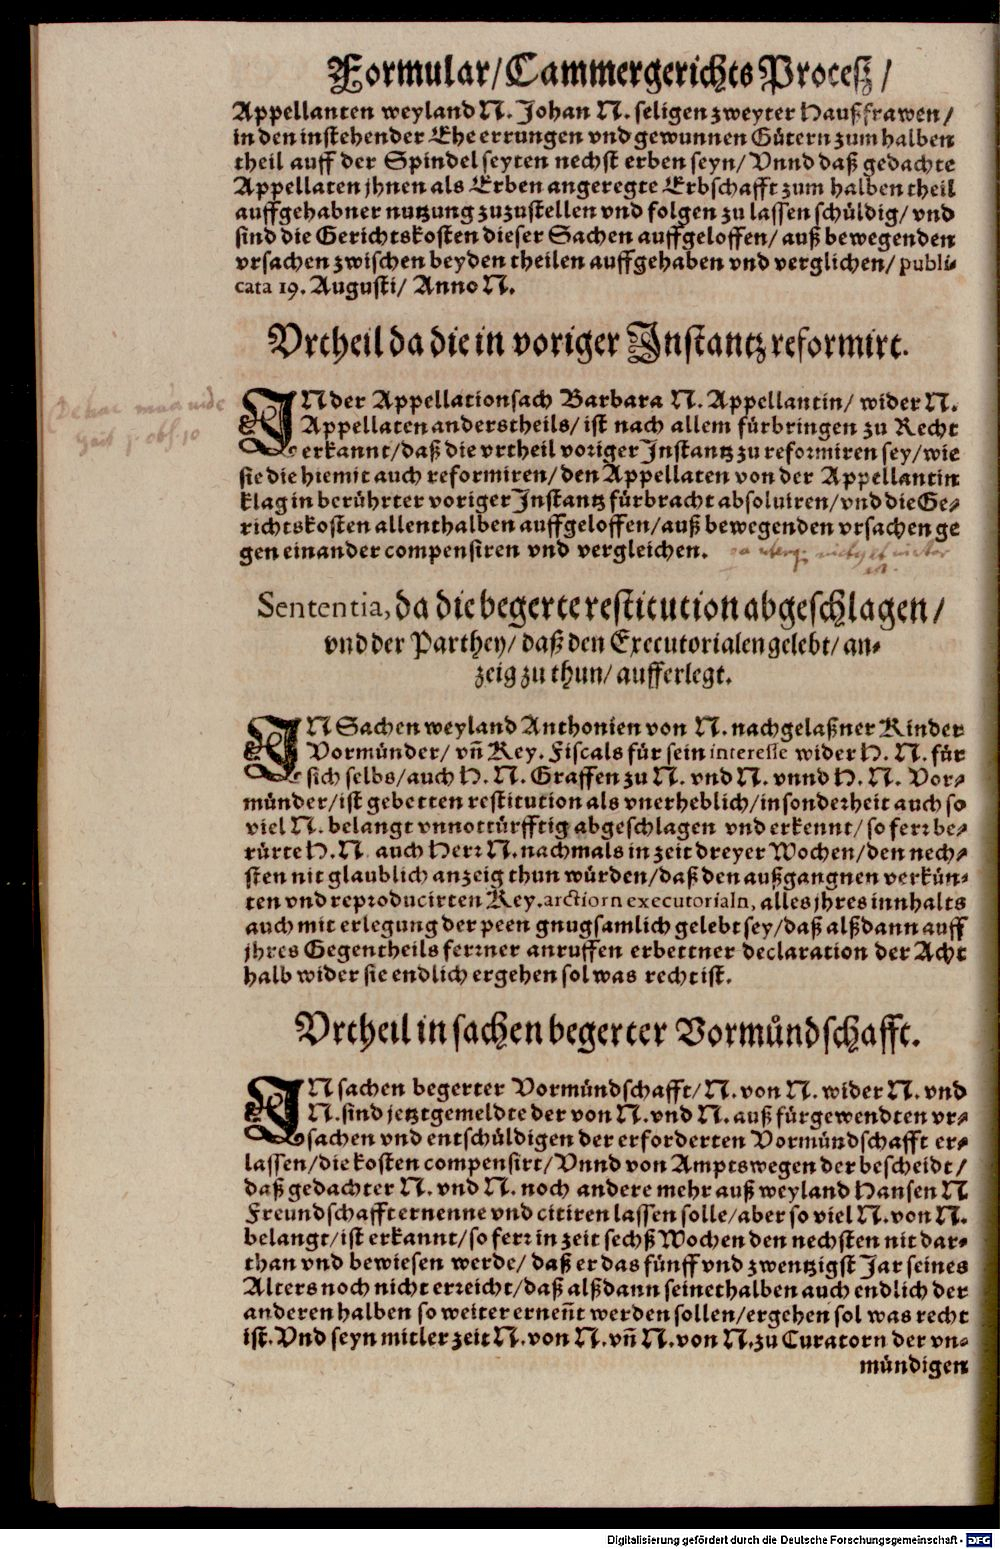 Formular/Cammergerichts Proceß/
Appellanten weyland N. Johan N. seligen zweyter Haußfrawen/
in den instehender Ehe errungen vnd gewunnen Gütern zum halben
theil auff der Spindel seyten nechst erben seyn/ Vnnd daß gedachte
Appellaten jhnen als Erben angeregte Erbschafft zum halben theil
auffgehabner nutzung zuzustellen vnd folgen zu lassen schüldig/ vnd
sind die Gerichtskosten dieser Sachen auffgeloffen/ auß bewegenden
vrsachen zwischen beyden theilen auffgehaben vnd verglichen/ publi-
cata 19. Augusti/ Anno N.
Vrtheil da die in voriger Instantz reformirt.
IN der Appellationsach Barbara N. Appellantin/ wider N.
Appellaten anderstheils/ ist nach allem fürbringen zu Recht
erkannt/ daß die vrtheil voriger Instantz zu reformiren sey/ wie
sie die hiemit auch reformiren/ den Appellaten von der Appellantin
klag in berührter voriger Instantz fürbracht absoluiren/ vnd die Ge-
richtskosten allenthalben auffgeloffen/ auß bewegenden vrsachen ge
gen einander compensiren vnd vergleichen.
Sententia, da die begerte restitution abgeschlagen/
vnd der Parthey/ daß den Executorialen gelebt/ an-
zeig zu thun/ aufferlegt.
IN Sachen weyland Anthonien von N. nachgelaßner Kinder
Vormünder/ vñ Key. Fiscals für sein interesse wider H. N. für
sich selbs/ auch H. N. Graffen zu N. vnd N. vnnd H. N. Vor-
münder/ ist gebetten restitution als vnerheblich/ insonderheit auch so
viel N. belangt vnnottürfftig abgeschlagen vnd erkennt/ so ferr be-
rürte H. N. auch Herr N. nachmals in zeit dreyer Wochen/ den nech-
sten nit glaublich anzeig thun würden/ daß den außgangnen verkün-
ten vnd reproducirten Key. arctiorn executorialn, alles jhres innhalts
auch mit erlegung der peen gnugsamlich gelebt sey/ daß alßdann auff
jhres Gegentheils ferrner anruffen erbettner declaration der Acht
halb wider sie endlich ergehen sol was recht ist.
Vrtheil in sachen begerter Vormündschafft.
IN sachen begerter Vormündschafft/ N. von N. wider N. vnd
N. sind jetztgemeldte der von N. vnd N. auß fürgewendten vr-
sachen vnd entschüldigen der erforderten Vormündschafft er-
lassen/ die kosten compensirt/ Vnnd von Amptswegen der bescheidt/
daß gedachter N. vnd N. noch andere mehr auß weyland Hansen N
Freundschafft ernenne vnd citiren lassen solle/ aber so viel N. von N.
belangt/ ist erkannt/ so ferr in zeit sechß Wochen den nechsten nit dar-
than vnd bewiesen werde/ daß er das fünff vnd zwentzigst Jar seines
Alters noch nicht erreicht/ daß alßdann seinethalben auch endlich der
anderen halben so weiter erneñt werden sollen/ ergehen sol was recht
ist. Vnd seyn mitler zeit N. von N. vñ N. von N. zu Curatorn der vn-
mündigen
Digitalisierung gefördert durch die Deutsche Forschungsgemeinschaft - DFG